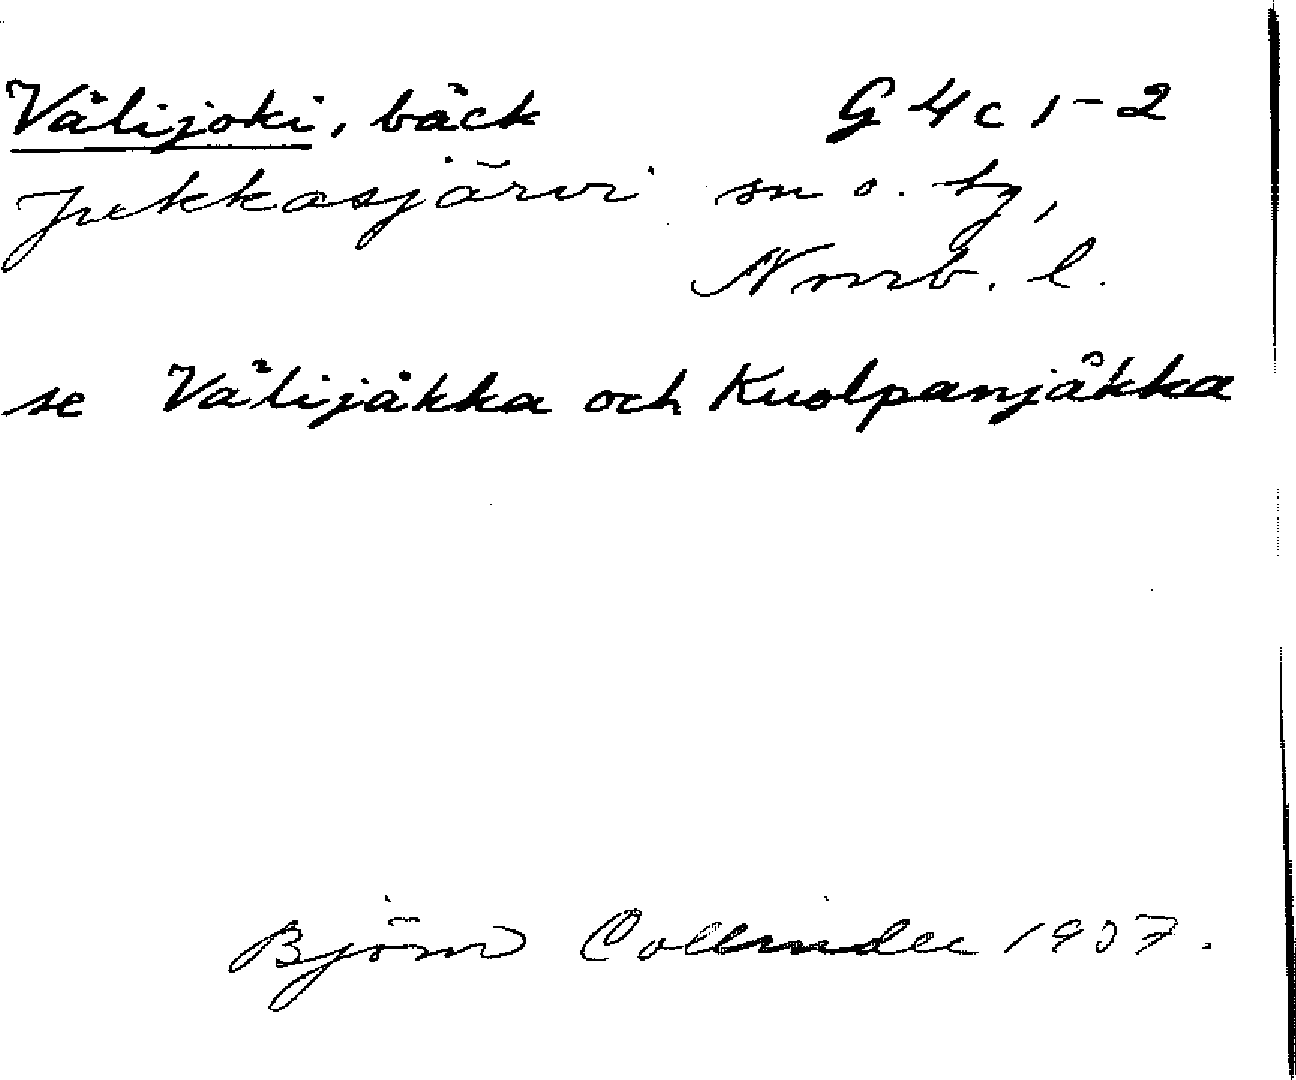 Välijoki, bäck G 4 c 1-2
Jukkasjärvi sn o. tg,
Nrrb. l.
se Välijåkka och Kuolpanjåkka
Björn Collinder 1957.